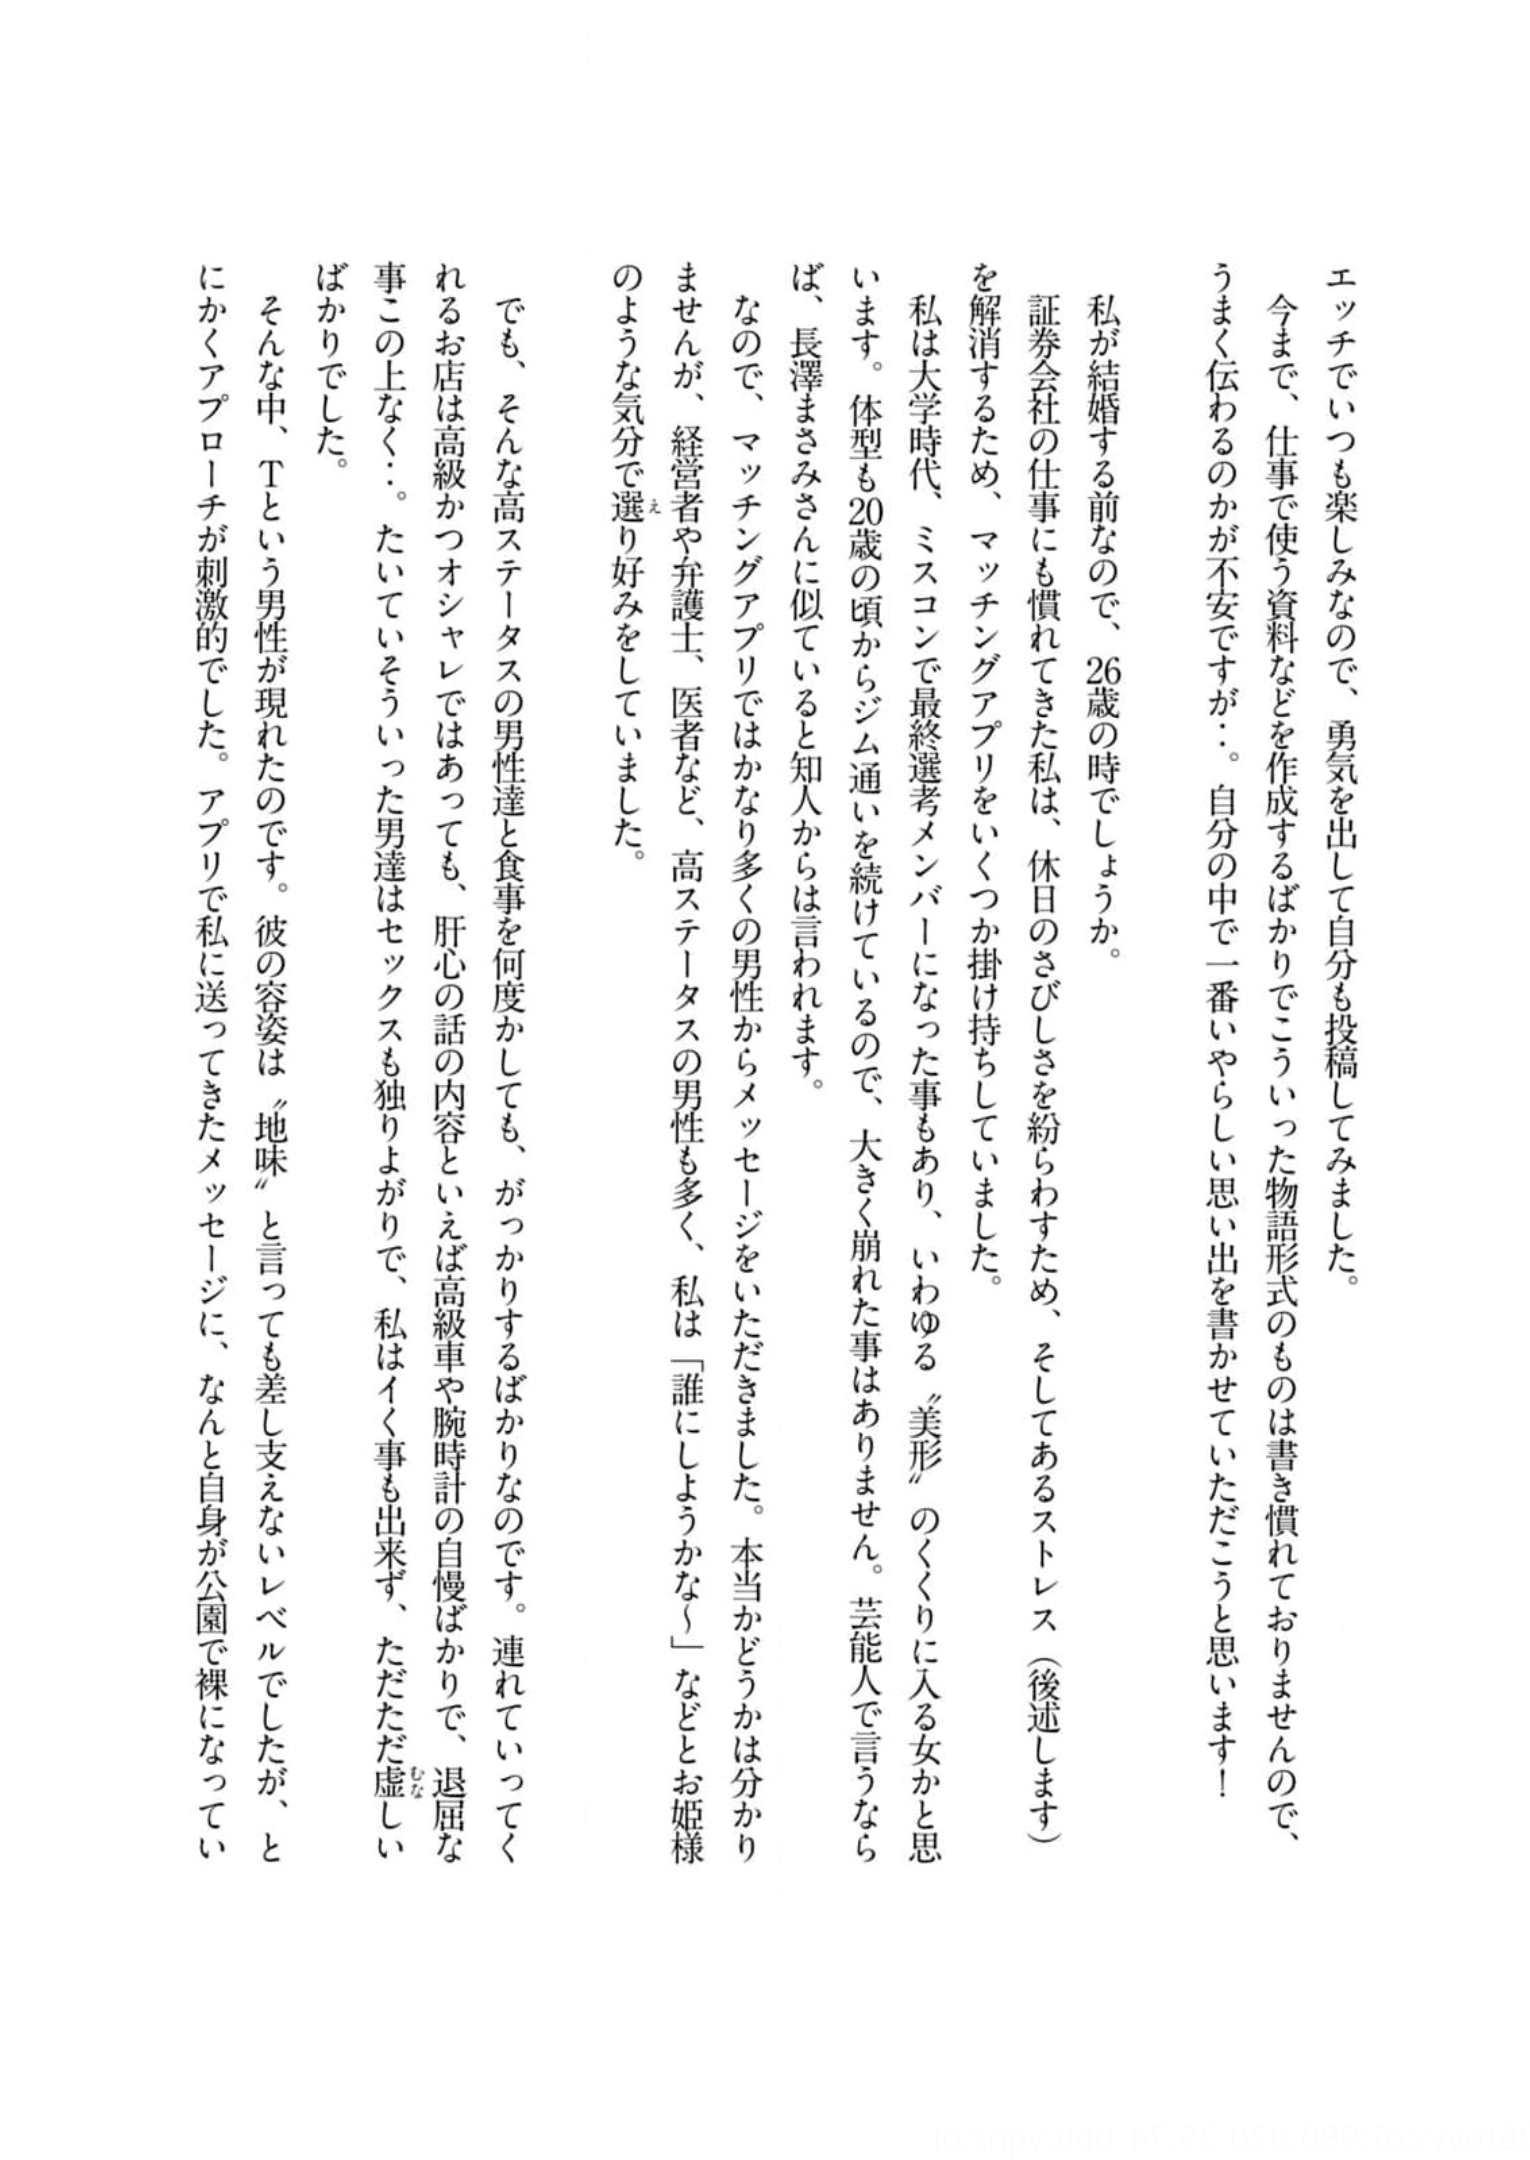 エッチでいつも楽しみなので、勇気を出して自分も投稿してみました。
今まで、仕事で使う資料などを作成するばかりでこういった物語形式のものは書き慣れておりませんので、
うまく伝わるのかが不安ですが‥。自分の中で一番いやらしい思い出を書かせていただこうと思います！
私が結婚する前なので、26歳の時でしょうか。
証券会社の仕事にも慣れてきた私は、休日のさびしさを紛らわすため、そしてあるストレス（後述します）
を解消するため、マッチングアプリをいくつか掛け持ちしていました。
私は大学時代、ミスコンで最終選考メンバーになった事もあり、いわゆる〝美形〟のくくりに入る女かと思
います。体型も20歳の頃からジム通いを続けているので、大きく崩れた事はありません。芸能人で言うなら
ば、長澤まさみさんに似ていると知人からは言われます。
なので、マッチングアプリではかなり多くの男性からメッセージをいただきました。本当かどうかは分かり
ませんが、経営者や弁護士、医者など、高ステータスの男性も多く、私は「誰にしようかな〜」などとお姫様
のような気分で選り好みをしていました。
でも、そんな高ステータスの男性達と食事を何度かしても、がっかりするばかりなのです。連れていってく
れるお店は高級かつオシャレではあっても、肝心の話の内容といえば高級車や腕時計の自慢ばかりで、退屈な
事この上なく‥。たいていそういった男達はセックスも独りよがりで、私はイく事も出来ず、ただただ虚しい
ばかりでした。
そんな中、Tという男性が現れたのです。彼の容姿は〝地味〟と言っても差し支えないレベルでしたが、と
にかくアプローチが刺激的でした。アプリで私に送ってきたメッセージに、なんと自身が公園で裸になってい